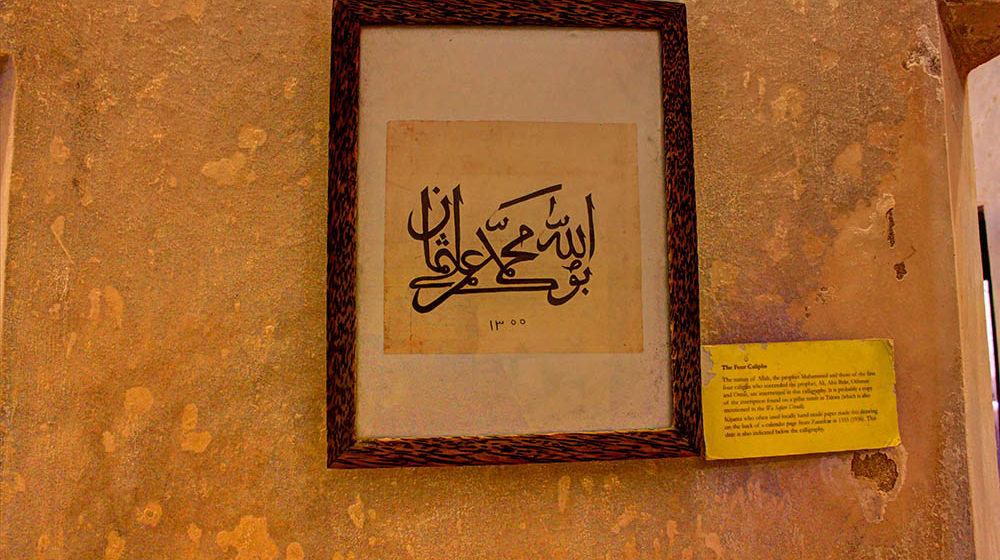 الله محمد بوبكر عمر عثمان علي
١٣٥٥
The Four Caliphs
The names of Allah, the prophet Muhammed and those of the first
four caliphs who succeeded the prophet, Ali, Abu Bakr, Othman
and Omar, are intertwined in this calligraphy. It is probably a copy
of the inscription found on a pillar tomb in Takwa (which is also
mentioned in the
Kijuma who often used locally hand-made paper made this drawing
on the back of a calendar page from Zanzibar in 1355 (1936). This
date is also indicated below the calligraphy.